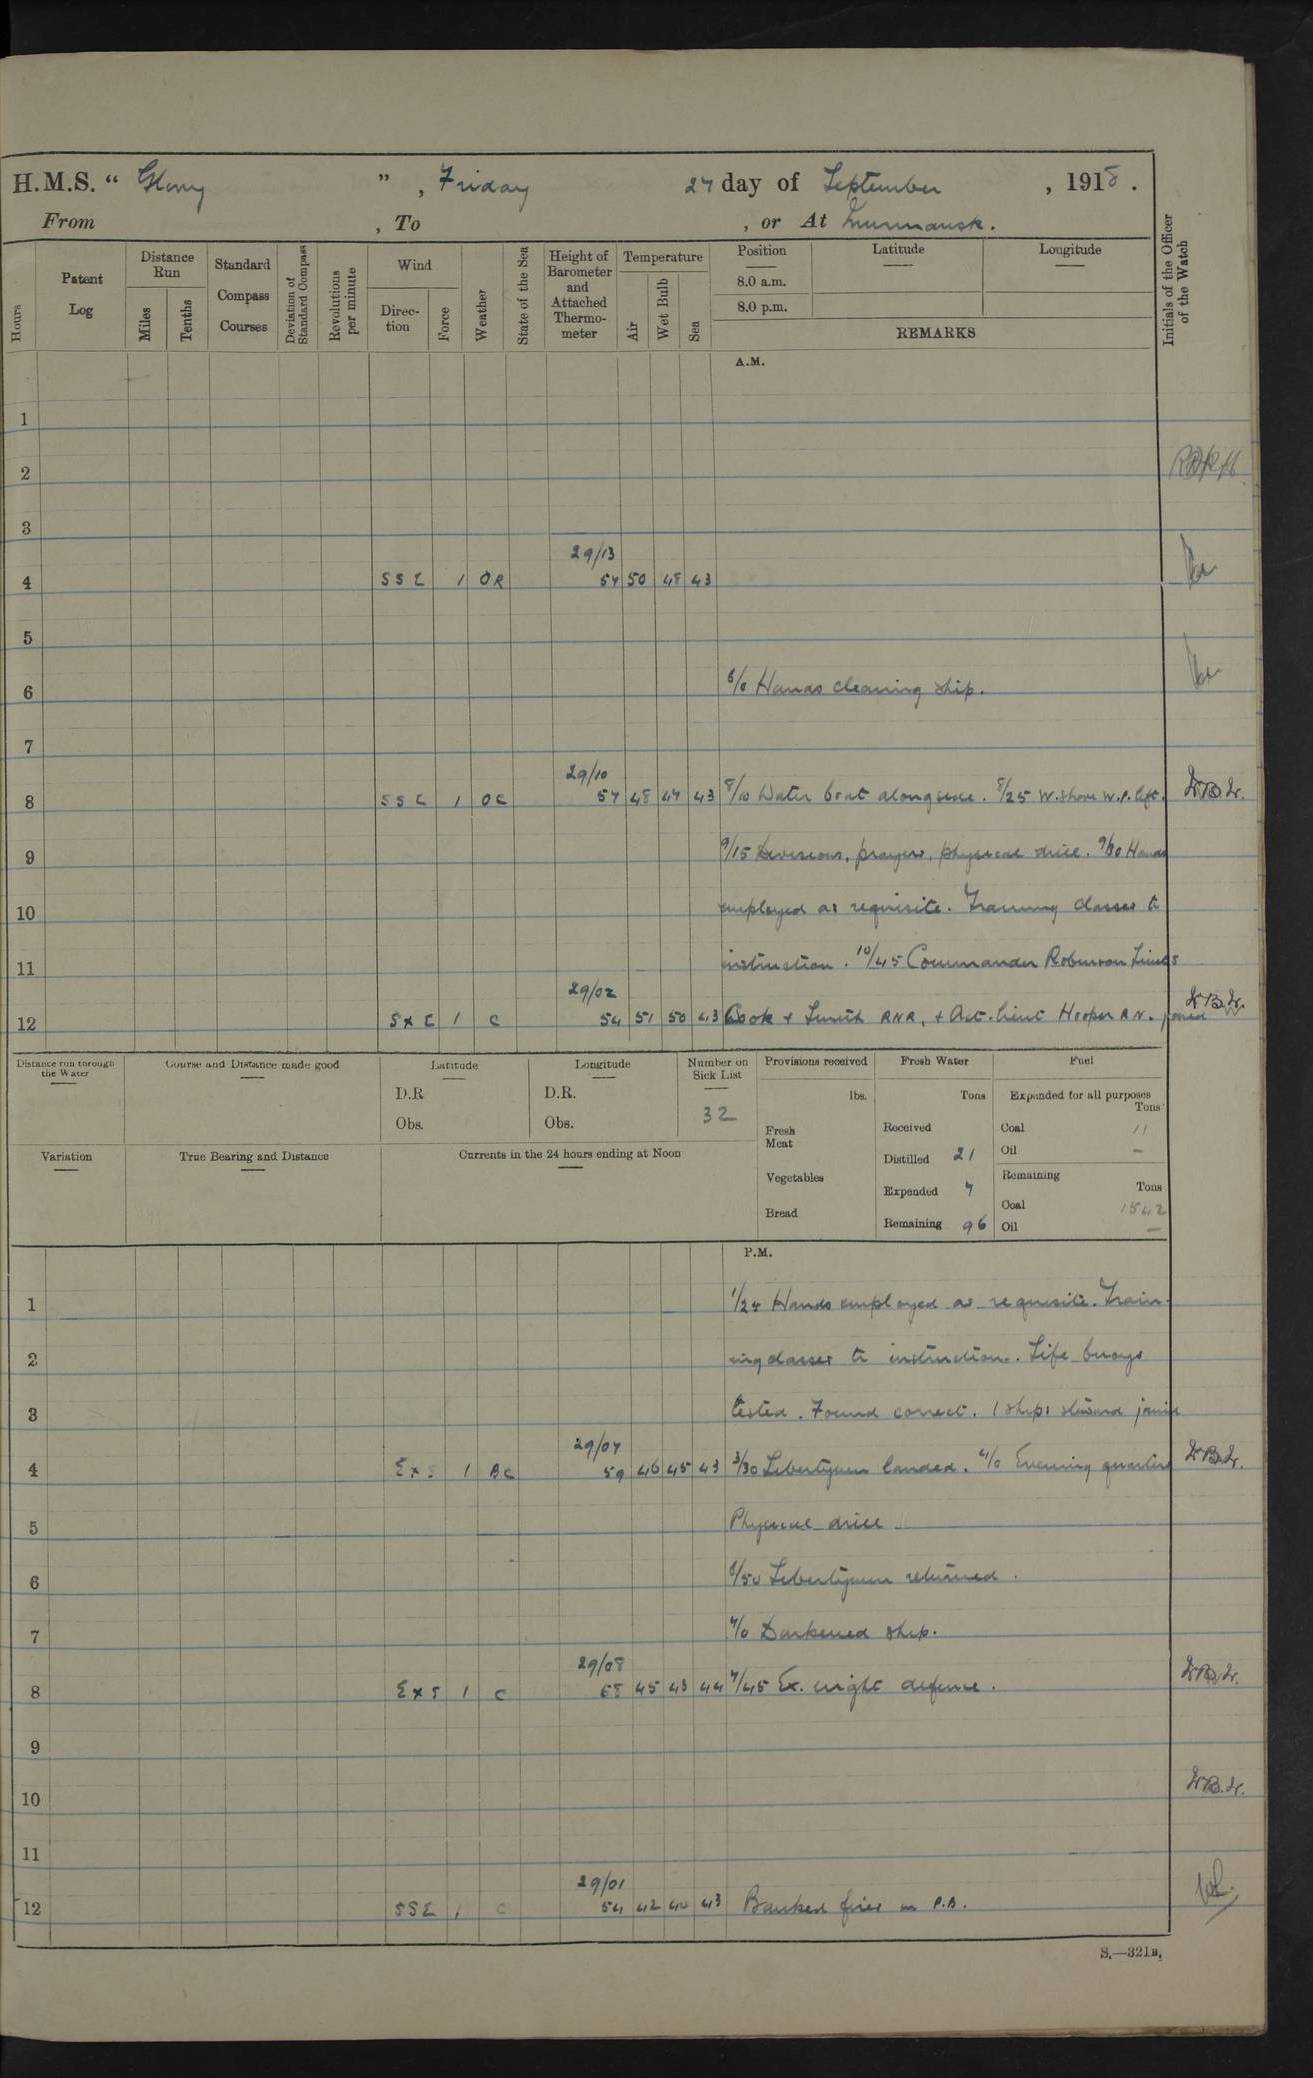 H.M.S. “ Glory ” , Friday 27 day of September , 1918 .
From , To , or At Murmansk.
Hours
Patent Log
Distance Run
Miles
Tenths
Standard Compass Courses
Deviation of Standard Compass
Revolutions per minute
Wind
Direction
Force
Weather
State of the Sea
Height of Barometer and Attached Thermometer
Temperature
Air
Wet Bulb
Sea
Position
8.0 a.m.
8.0 p.m.
Latitude
Longitude
REMARKS
Initials of the Officer of the Watch
A.M.
1
2
3
29/13
4 SSE 1 OR 54 50 48 43
5
6 6/0 Hands cleaning ship.
7
29/10
8 SSE 1 OC 57 48 47 43 8/10 Water boat alongside. 8/25 W. shore W.P. left. W.B.W.
9 9/15 Divisions, prayers, physical drill. 9/30 Hands
10 employed as requisite. Training classes to
11 instruction. 10/45 Commander Robinson Lieuts
29/02
12 SxE 1 C 54 51 50 43 Cook + Smith RNR, + Act. Lieut Hooper RN. joined W.B.W.
Distance run through the Water
Course and Distance made good
Latitude
D.R
Obs.
Longitude
D.R.
Obs.
Number on Sick List
32
Provisions received
lbs.
Fresh Meat
Vegetables
Bread
Fresh Water
Tons
Received
Distilled 21
Expended 7
Remaining 96
Fuel
Expended for all purposes
Tons
Coal 11
Oil –
Remaining
Tons
Coal 1542
Oil –
Variation
True Bearing and Distance
Currents in the 24 hours ending at Noon
P.M.
1 1/24 Hands employed as requisite. Train-
2 ing classes to instruction. Life buoys
3 tested. Found correct. 1 ships steward joined
29/07
4 ExS 1 BC 59 46 45 43 3/30 Libertymen landed. 4/0 Evening quarters W.B.W.
5 Physical drill.
6 6/50 Libertymen returned.
7 7/0 Darkened ship.
29/08
8 ExS 1 C 68 45 43 44 7/45 Ex. night defence. W.B.W.
9
10 W.B.W.
11
29/01
12 SSE 1 C 54 42 40 43 Banked fires in P.B.
S.—321B.